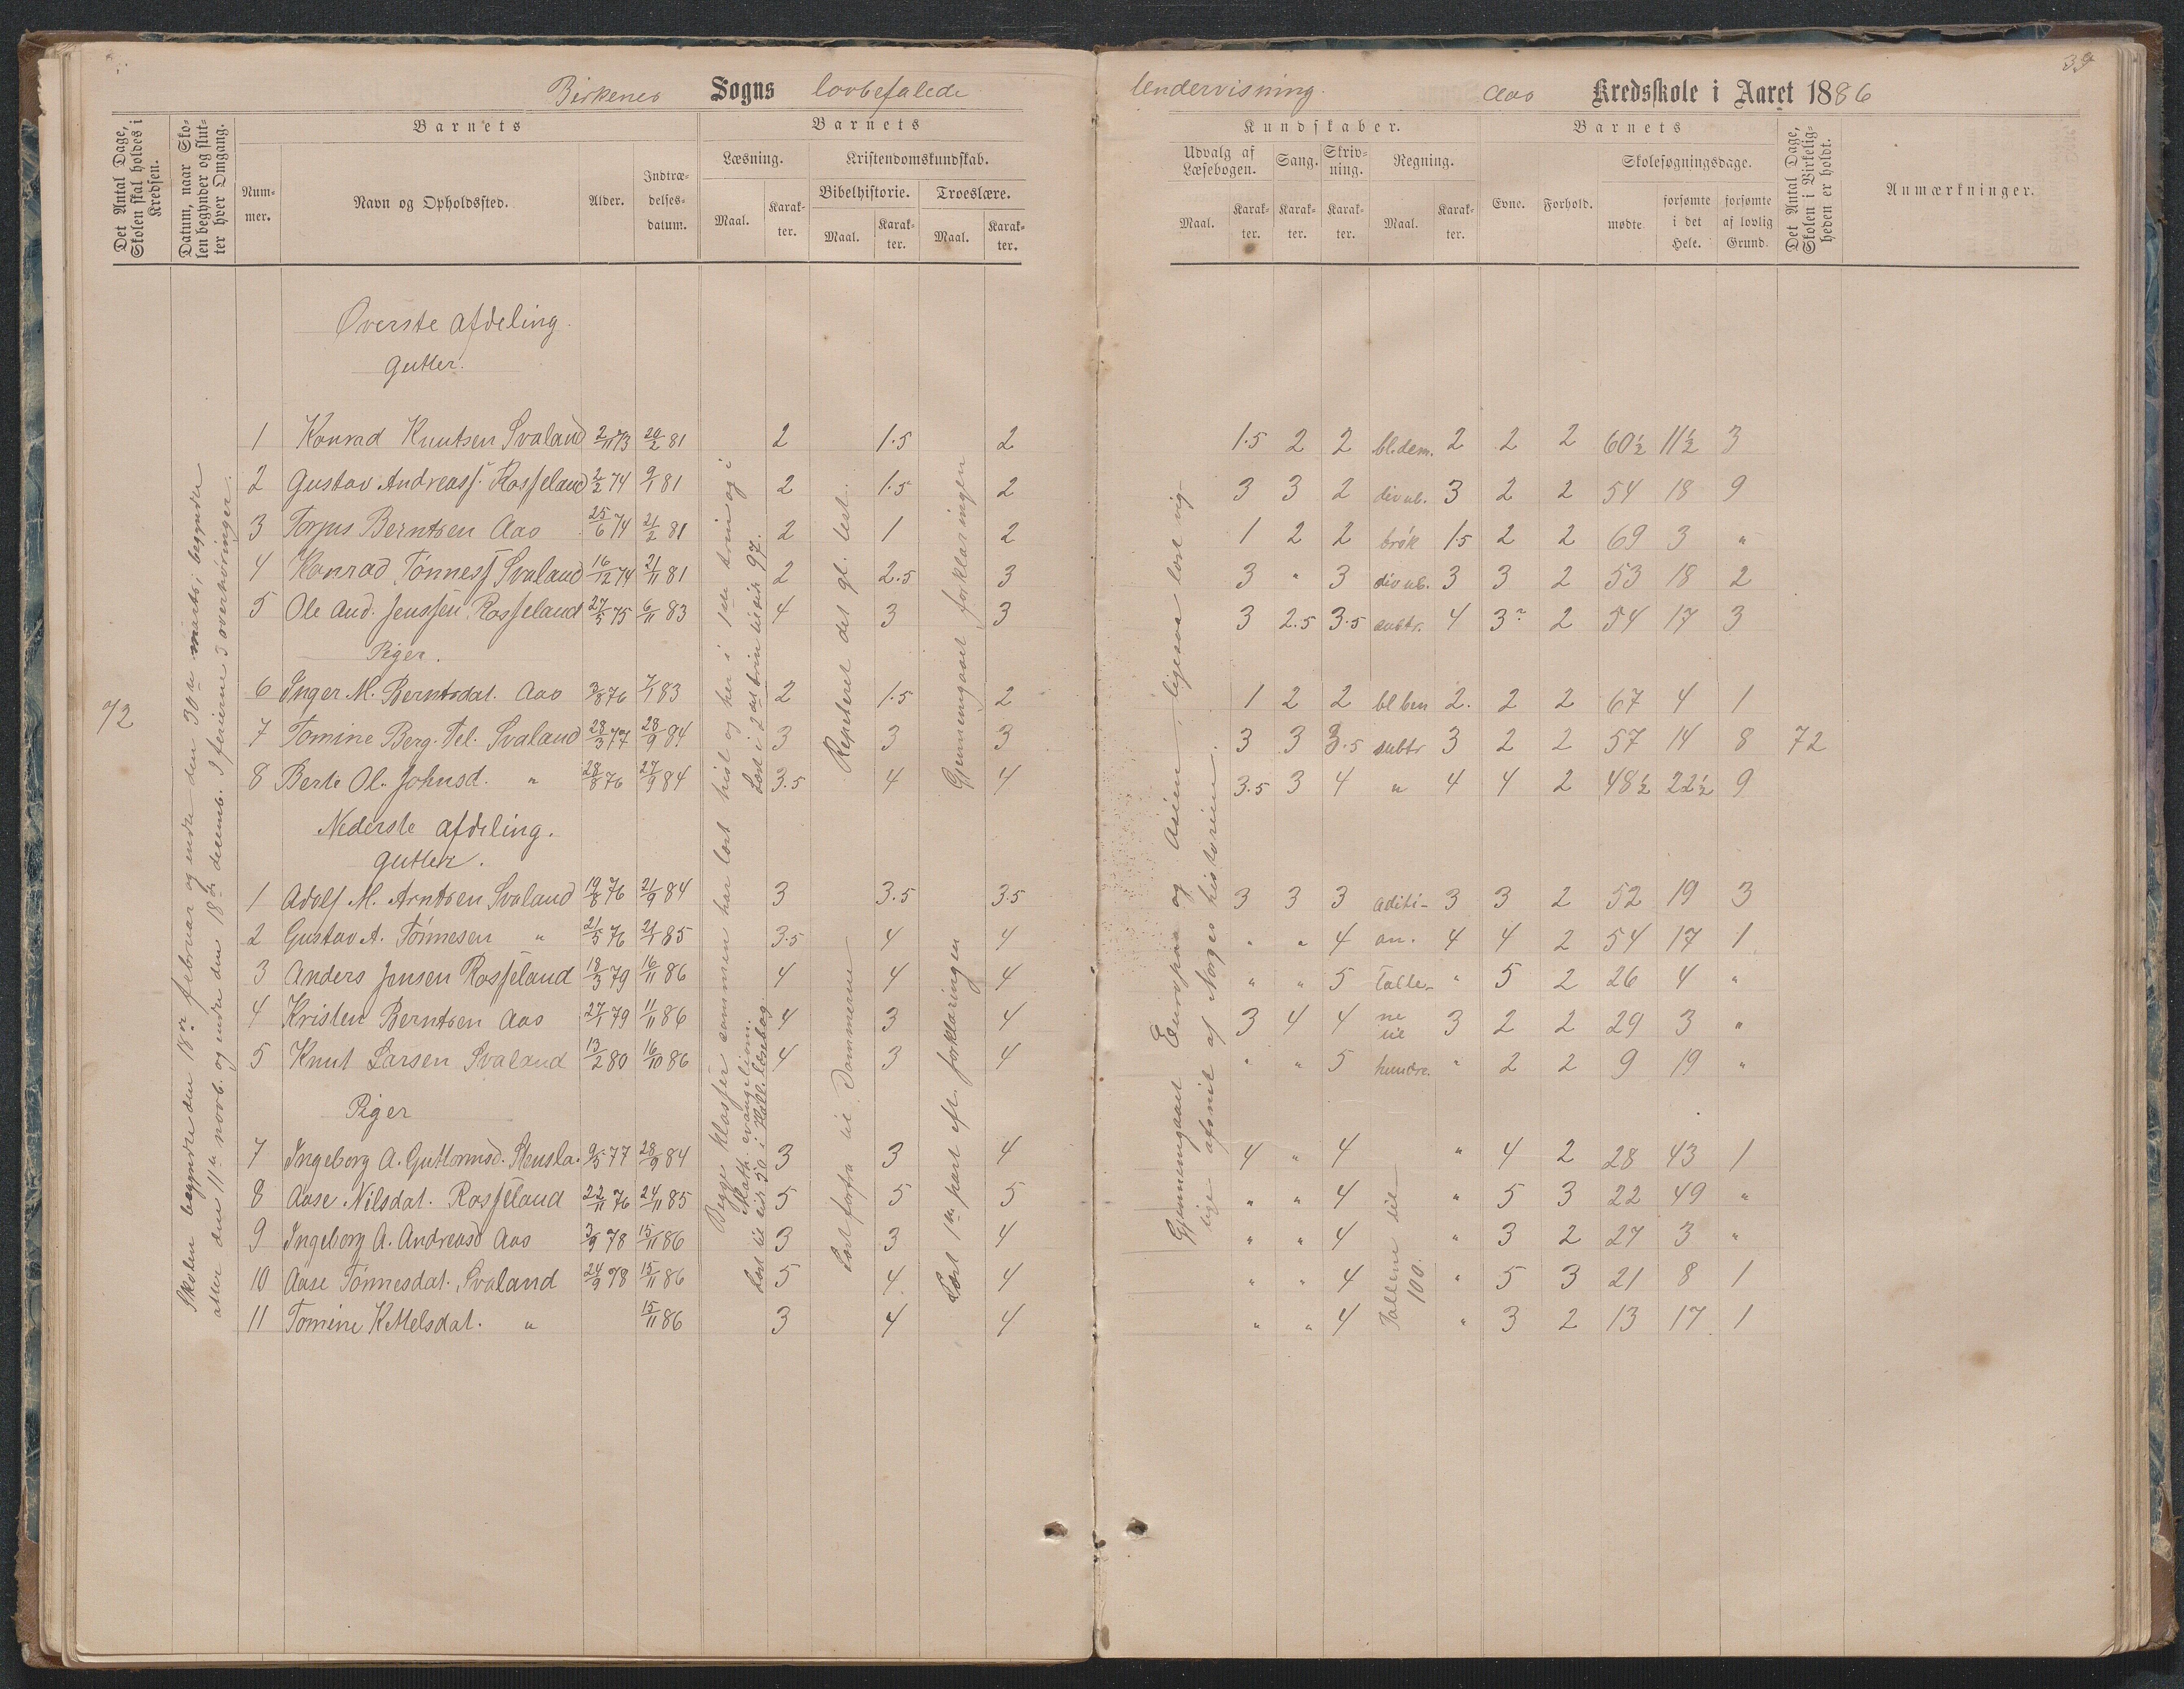 39
Birkenes Sogns lovbefalede Undervisning. Aas Kredsskole i Aaret 1886
Det Antal Dage, Skolen skal holdes i Kredsen.
Datum, naar Skolen begynder og slutter hver Omgang.
Barnets
Nummer.
Navn og Opholdssted.
Alder.
Indtrædelsesdatum.
Barnets
Læsning.
Maal.
Karakter.
Kristendomskundskab.
Bibelhistorie.
Maal.
Karakter.
Troeslære.
Maal.
Karakter.
Kundskaber.
Udvalg af Læsebogen.
Maal.
Karakter.
Sang.
Karakter.
Skrivning.
Karakter.
Regning.
Maal.
Karakter.
Barnets
Evne.
Forhold.
Skolesøgningsdage.
mødte
forsømte i det Hele.
forsømte af lovlig Grund.
Det Antal Dage, Skolen i Virkeligheden er holdt.
Anmærkninger.
72
Skolen begyndte den 18de februar og endte den 30te marts; begyndte
atter den 11te novb. og endte den 18de decemb. I ferierne 3 overhøringer.
Øverste afdeling.
Gutter.
1 Konrad Knutsen Svaland 2/11 73 20/2 81 2 1.5 2 1.5 2 2 bl.dem. 2 2 2 60½ 11½ 3
2 Gustav Andreass. Rosseland 2/2 74 9/1 81 2 1.5 2 3 3 2 div ub. 3 2 2 54 18 9
3 Torjus Berntsen Aas 25/6 74 21/2 81 2 1 2 1 2 2 brøk 1.5 2 2 69 3 "
4 Konrad Tønness Svaland 16/12 74 21/11 81 2 2.5 3 3 " 3 div ub. 3 3 2 53 18 2
5 Ole And. Jenssen Rosseland 27/5 75 6/11 83 4 3 3 3 2.5 3.5 subtr. 4 3 2 54 17 3
Piger.
6 Inger M. Berntsdat. Aas 3/8 76 7/1 83 2 1.5 2 1 2 2 bl ben 2. 2 2 67 4 1
7 Tomine Berg. Tel. Svaland 28/3 77 28/9 84 3 3 3 3 3 3.5 subtr 3 2 2 57 14 8 72
8 Berte Ol. Johnsd. " 28/8 76 27/9 84 3.5 4 4 3.5 3 4 " 4 4 2 48½ 22½ 9
Nederste afdeling.
Gutter.
1 Adolf M. Arntsen Svaland 19/8 76 21/9 84 3 3.5 3.5 3 3 3 aditi- 3 3 2 52 19 3
2 Gustav A. Tønnesen " 21/5 76 21/1 85 3.5 4 4 " " 4 on. 4 4 2 54 17 1
3 Anders Jensen Rosseland 18/3 79 16/11 86 4 4 4 " " 5 Talle- " 5 2 26 4 "
4 Kristen Berntsen Aas 27/1 79 11/11 86 4 3 4 3 4 4 ne til 3 2 2 29 3 "
5 Knut Larsen Svaland 13/2 80 16/10 86 4 3 4 " " 5 hundre. " 2 2 9 19 "
Piger
7 Ingeborg A. Guttormsd. Stensla. 9/5 77 28/9 84 3 3 4 4 " 4 " 4 2 28 43 1
8 Aase Nilsdat. Rosseland 22/11 76 24/11 85 5 5 5 " " 4 " 5 3 22 49 "
9 Ingeborg A. Andreasd Aas 3/9 78 15/11 86 3 3 4 " " 4 " 3 2 27 3 "
10 Aase Tønnesdat. Svaland 24/9 78 15/11 86 5 4 4 " " 4 " 5 3 21 8 1
11 Tomine Kittelsdat. " 15/11 86 3 4 4 " " 4 " 3 2 13 17 1
Begge klasser sammen har læst hist og her i 1ste trin og i
Math. evangelium.
Læst i 2det trin til side 97.
Læst til side 50 i Kold. læsebog.
Repeteret det gl. test.
Læst forfra til Dommerne
Gjennemgaaet forklaringen
Læst 1ste part af forklaringen
Gjennemgaaet Europa og Asien, ligesaa læst vig-
tige afsnit af Norges historien.
Tallene til
100.